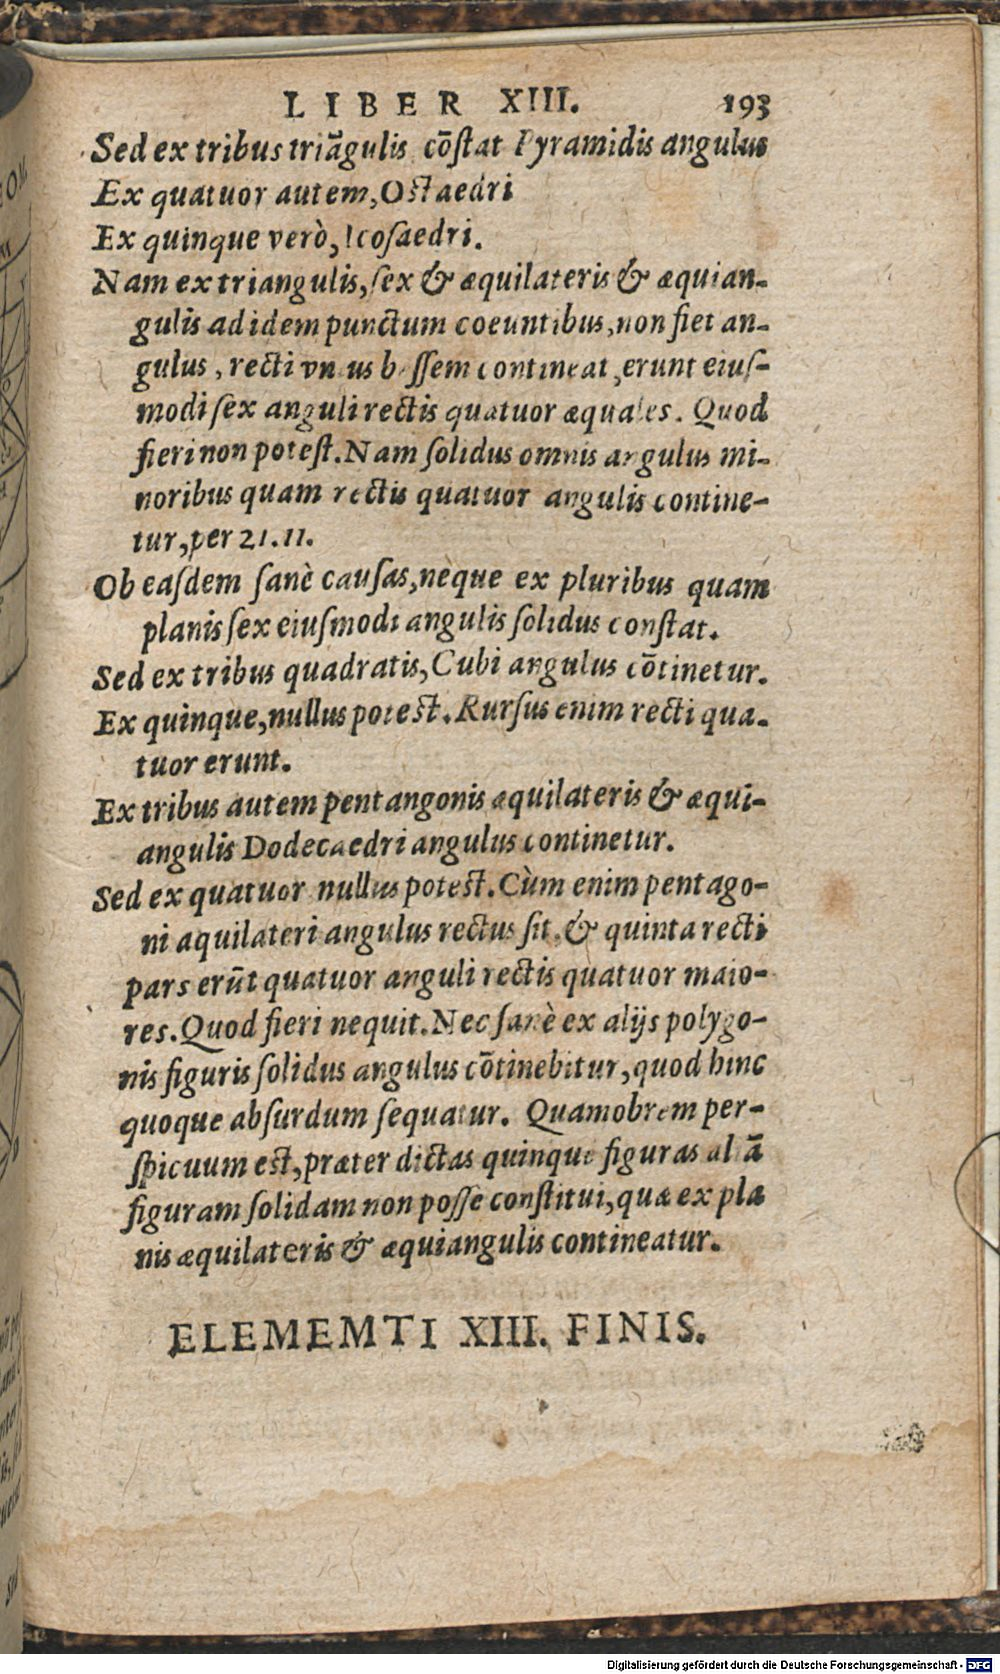 LIBER XIII. 193
Sed ex tribus triãgulis cõſtat Pyramidis angulus
Ex quatuor autem, Octaedri
Ex quinque verò, Icoſaedri.
Nam ex triangulis, ſex & æquilateris & æquian-
gulis ad idem punctum coeuntibus, non fiet an-
gulus, recti vnius beſſem contineat, erunt eiuſ-
modi ſex anguli rectis quatuor æquales. Quod
fieri non poteſt. Nam ſolidus omnis angulus mi-
noribus quam rectis quatuor angulis contine-
tur, per 21. 11.
Ob eaſdem ſanè cauſas, neque ex pluribus quam
planis ſex eiuſmodi angulis ſolidus conſtat.
Sed ex tribus quadratis, Cubi angulus cõtinetur.
Ex quinque, nullus poteſt. Rurſus enim recti qua-
tuor erunt.
Ex tribus autem pentangonis æquilateris & æqui-
angulis Dodecaedri angulus continetur.
Sed ex quatuor nullus poteſt. Cùm enim pentago-
ni aquilateri angulus rectus ſit, & quinta recti
pars erũt quatuor anguli rectis quatuor maio-
res. Quod fieri nequit. Nec ſanè ex alijs polygo-
nis figuris ſolidus angulus cõtinebitur, quod hinc
quoque abſurdum ſequatur. Quamobrem per-
ſpicuum eſt, præter dictas quinque figuras aliã
figuram ſolidam non poſſe conſtitui, quæ ex pla
nis æquilateris & æquiangulis contineatur.
ELEMEMTI XIII. FINIS.
Digitalisierung gefördert durch die Deutsche Forschungsgemeinschaft - DFG